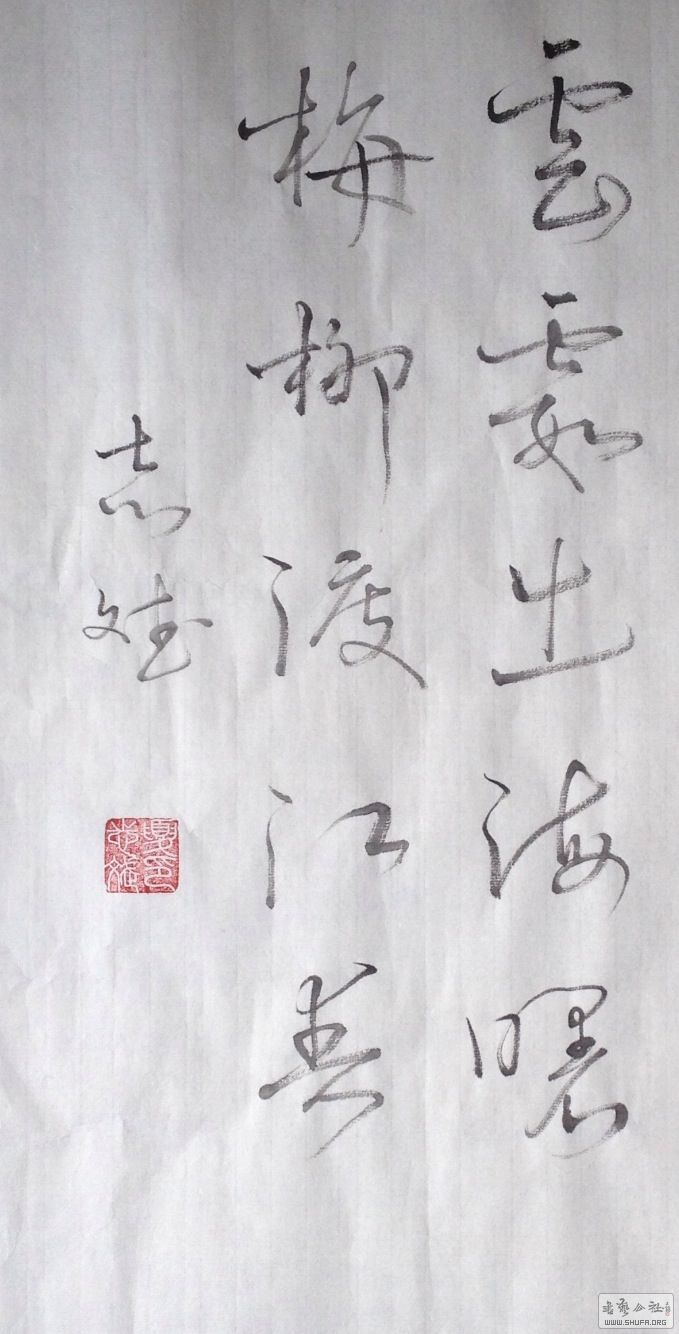 雲霞出海曙
梅柳渡江春
志斌
書藝公社
WWW.SHUFA.ORG